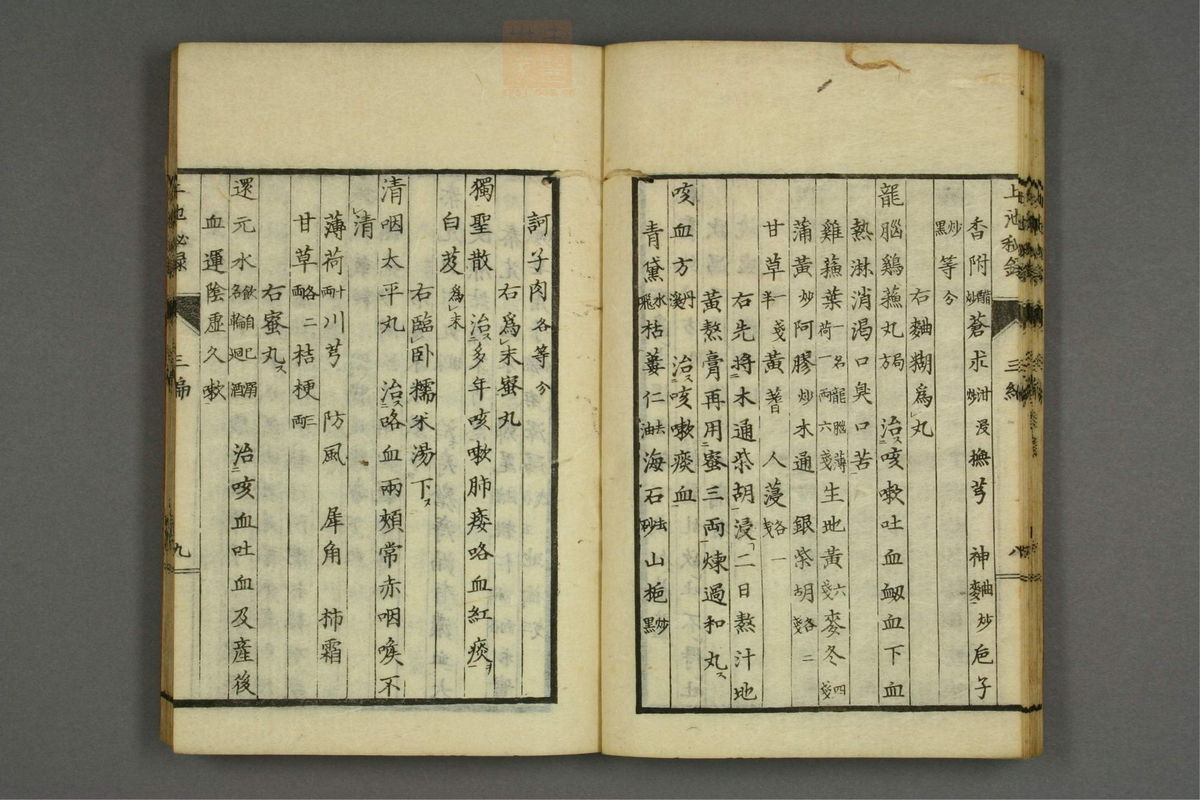 香附醋炒蒼朮泔浸撫芎　神麯炒巵子
炒黑等分
右麯糊爲丸
龍腦鷄蘓丸局方　治咳嗽吐血衂血下血
熱淋消渴口臭口苦
雞蘓葉一名龍腦薄荷一兩六錢生地黃六錢麥冬四錢
蒲黃炒阿膠炒木通　銀柴胡各二錢
甘草一錢半黃蓍　人薓各一錢
右先將木通柴胡浸二日熬汁地
黃熬膏再用蜜三兩煉過和丸
咳血方丹溪　治咳嗽痰血
青黛水飛枯蔞仁去油海石去砂山梔炒黑
上池秘錄　三編　八
訶子肉各等分
右爲末蜜丸
獨聖散　治多年咳嗽肺痿咯血紅痰
白芨爲末
右臨臥糯米湯下
清咽太平丸　治咯血兩頰常赤咽喉不
清
薄荷十兩川芎　防風　犀角　柿霜
甘草各二兩桔梗三兩
右蜜丸
還元水飲自己溺名輪廻酒　治咳血吐血及產後
血運陰虛久嗽
三編　九